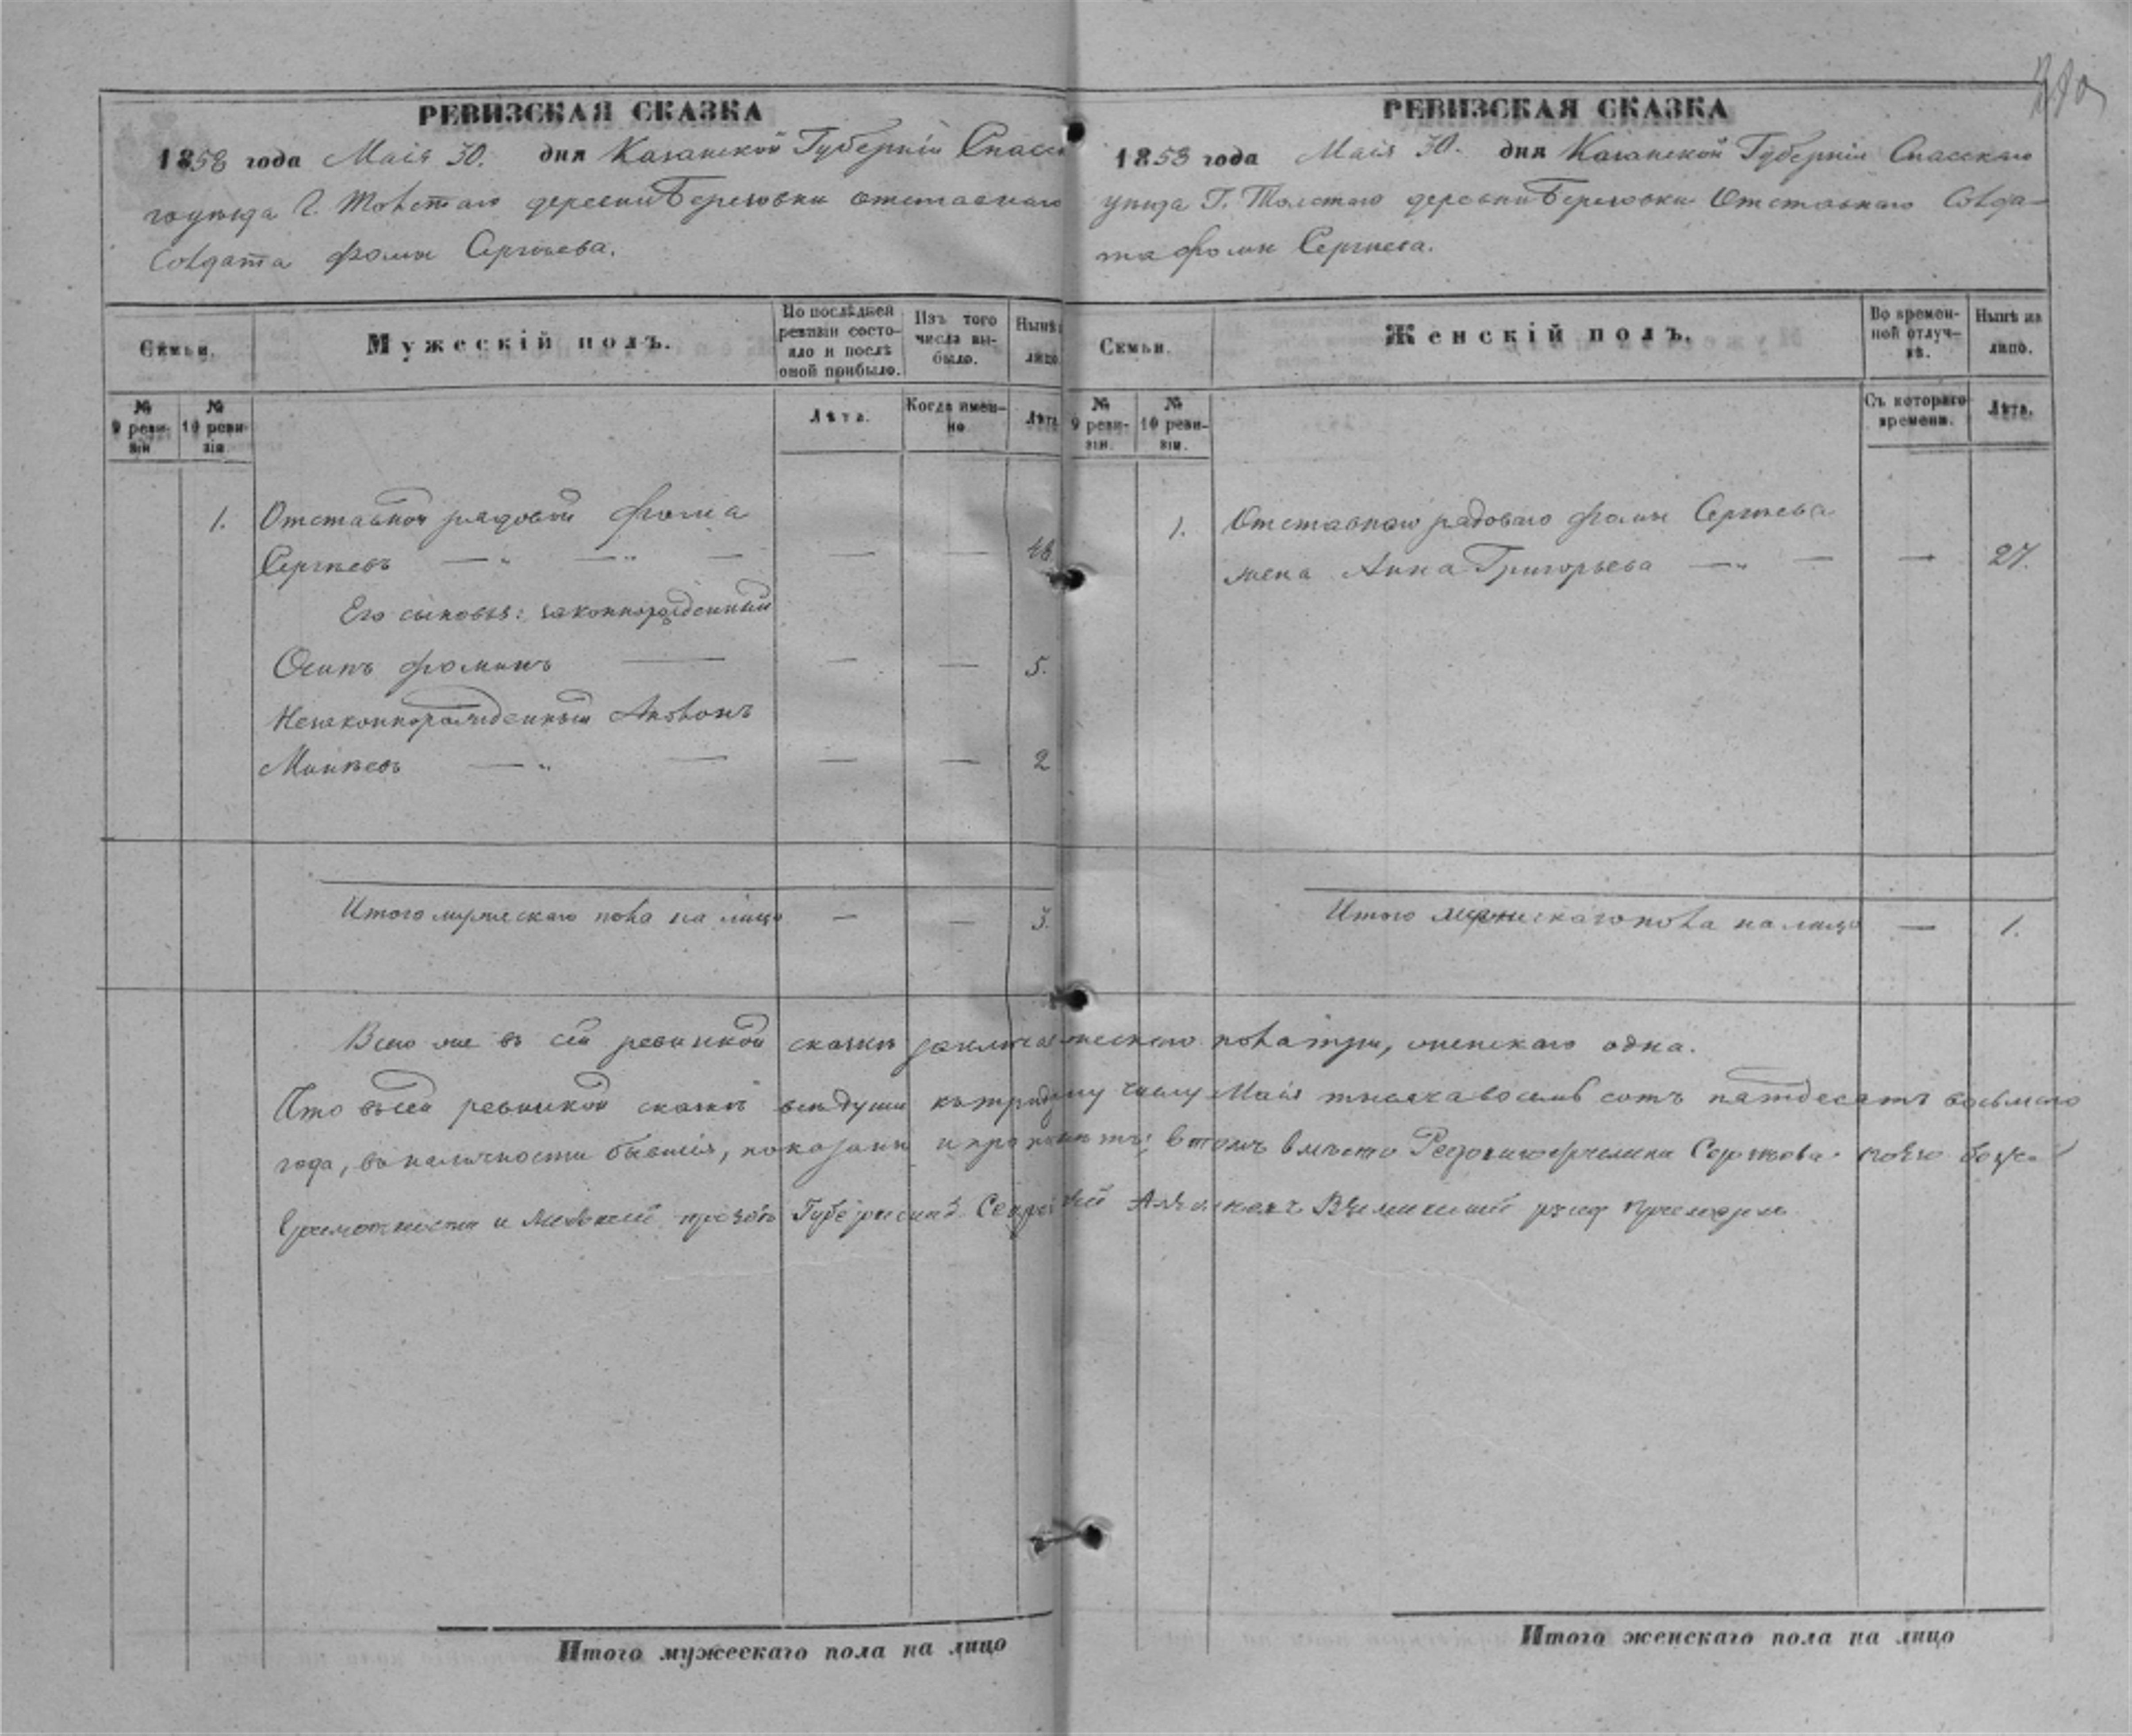 РЕВИЗСКАЯ СКАЗКА
1858 года Маія 30. дня Казанской Губерніи Спасска
го уѣзда Г. Толстаго деревни Береговки отставнаго
Солдата Фомы Сергѣева.
Семьи.
Мужескій полъ.
По послѣдней ревизіи состояло и послѣ оной прибыло.
Изъ того числа выбыло.
Нынѣ на лицо
№ 9 ревизіи
№ 10 ревизіи
Лѣта.
Когда именно
Лѣта
1. Отставной рядовой Фома
Сергѣевъ — — — — — 48
Его сыновья: законнорожденный
Осипъ Фоминъ — — — 5.
Незаконнорожденный Антонъ
Минѣевъ — — — — 2
Итого мужескаго пола на лицо — — 3.
Итого мужескаго пола на лицо
РЕВИЗСКАЯ СКАЗКА
1858 года Маія 30. дня Казанской Губерніи Спасскаго
уѣзда Г. Толстаго деревни Береговки Отставнаго Солда-
та Фомы Сергѣева.
Семьи.
Женскій полъ.
Во временной отлучкѣ.
Нынѣ на лицо.
№ 9 ревизіи.
№ 10 ревизіи.
Съ котораго времени.
Лѣта.
1. Отставнаго рядоваго Фомы Сергѣева
жена Анна Григорьева — — — 27.
Итого женскаго пола на лицо — 1.
Всего же въ сей ревизкой сказкѣ мужескаго пола три, женскаго одна.
Что въ сей ревизкой сказкѣ всѣ души къ тридцатому числу Маія тысяча восемь сотъ пятдесятъ восьмаго
года, въ наличности бывшія, показаны и прописаны; в томъ вмѣсто
Губернскій Секретарь руку приложилъ
Итого женскаго пола на лицо